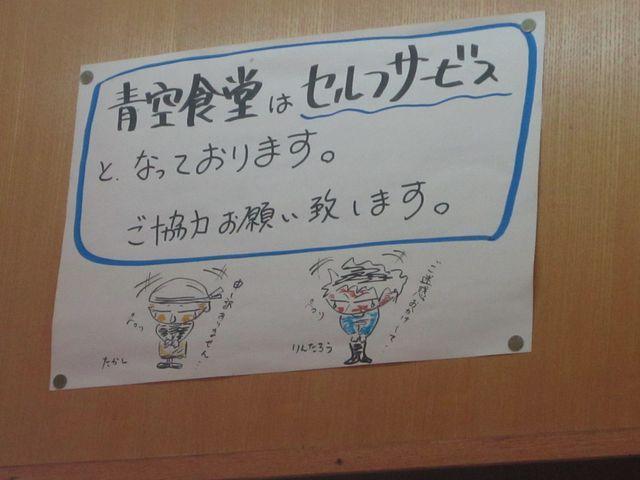 青空食堂はセルフサービス
と、なっております。
ご協力お願い致します。
申し訳ありません…
ペコッ
たかし
ご迷惑おかけして…
ペコリ
りんたろう